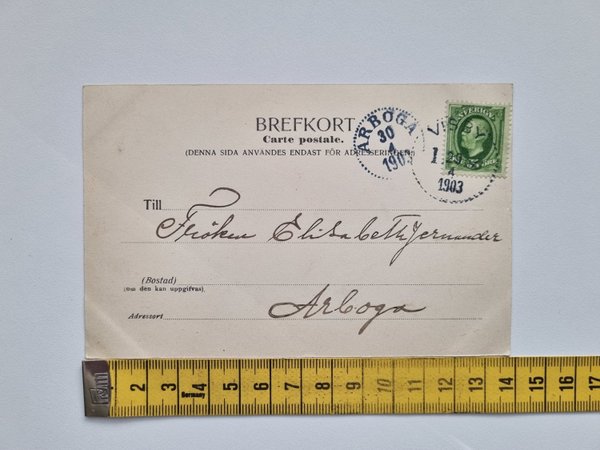 BREFKORT
Carte postale.
(DENNA SIDA ANVÄNDES ENDAST FÖR ADRESSERINGEN.)
ARBOGA
30
4
1903
SVERIGE
1903
Till
Fröken Elisabeth Jernander
(Bostad)
(om den kan uppgifvas)
Arboga
Adressort
2 3 4 5 6 7 8 9 10 11 12 13 14 15 16 17
Germany